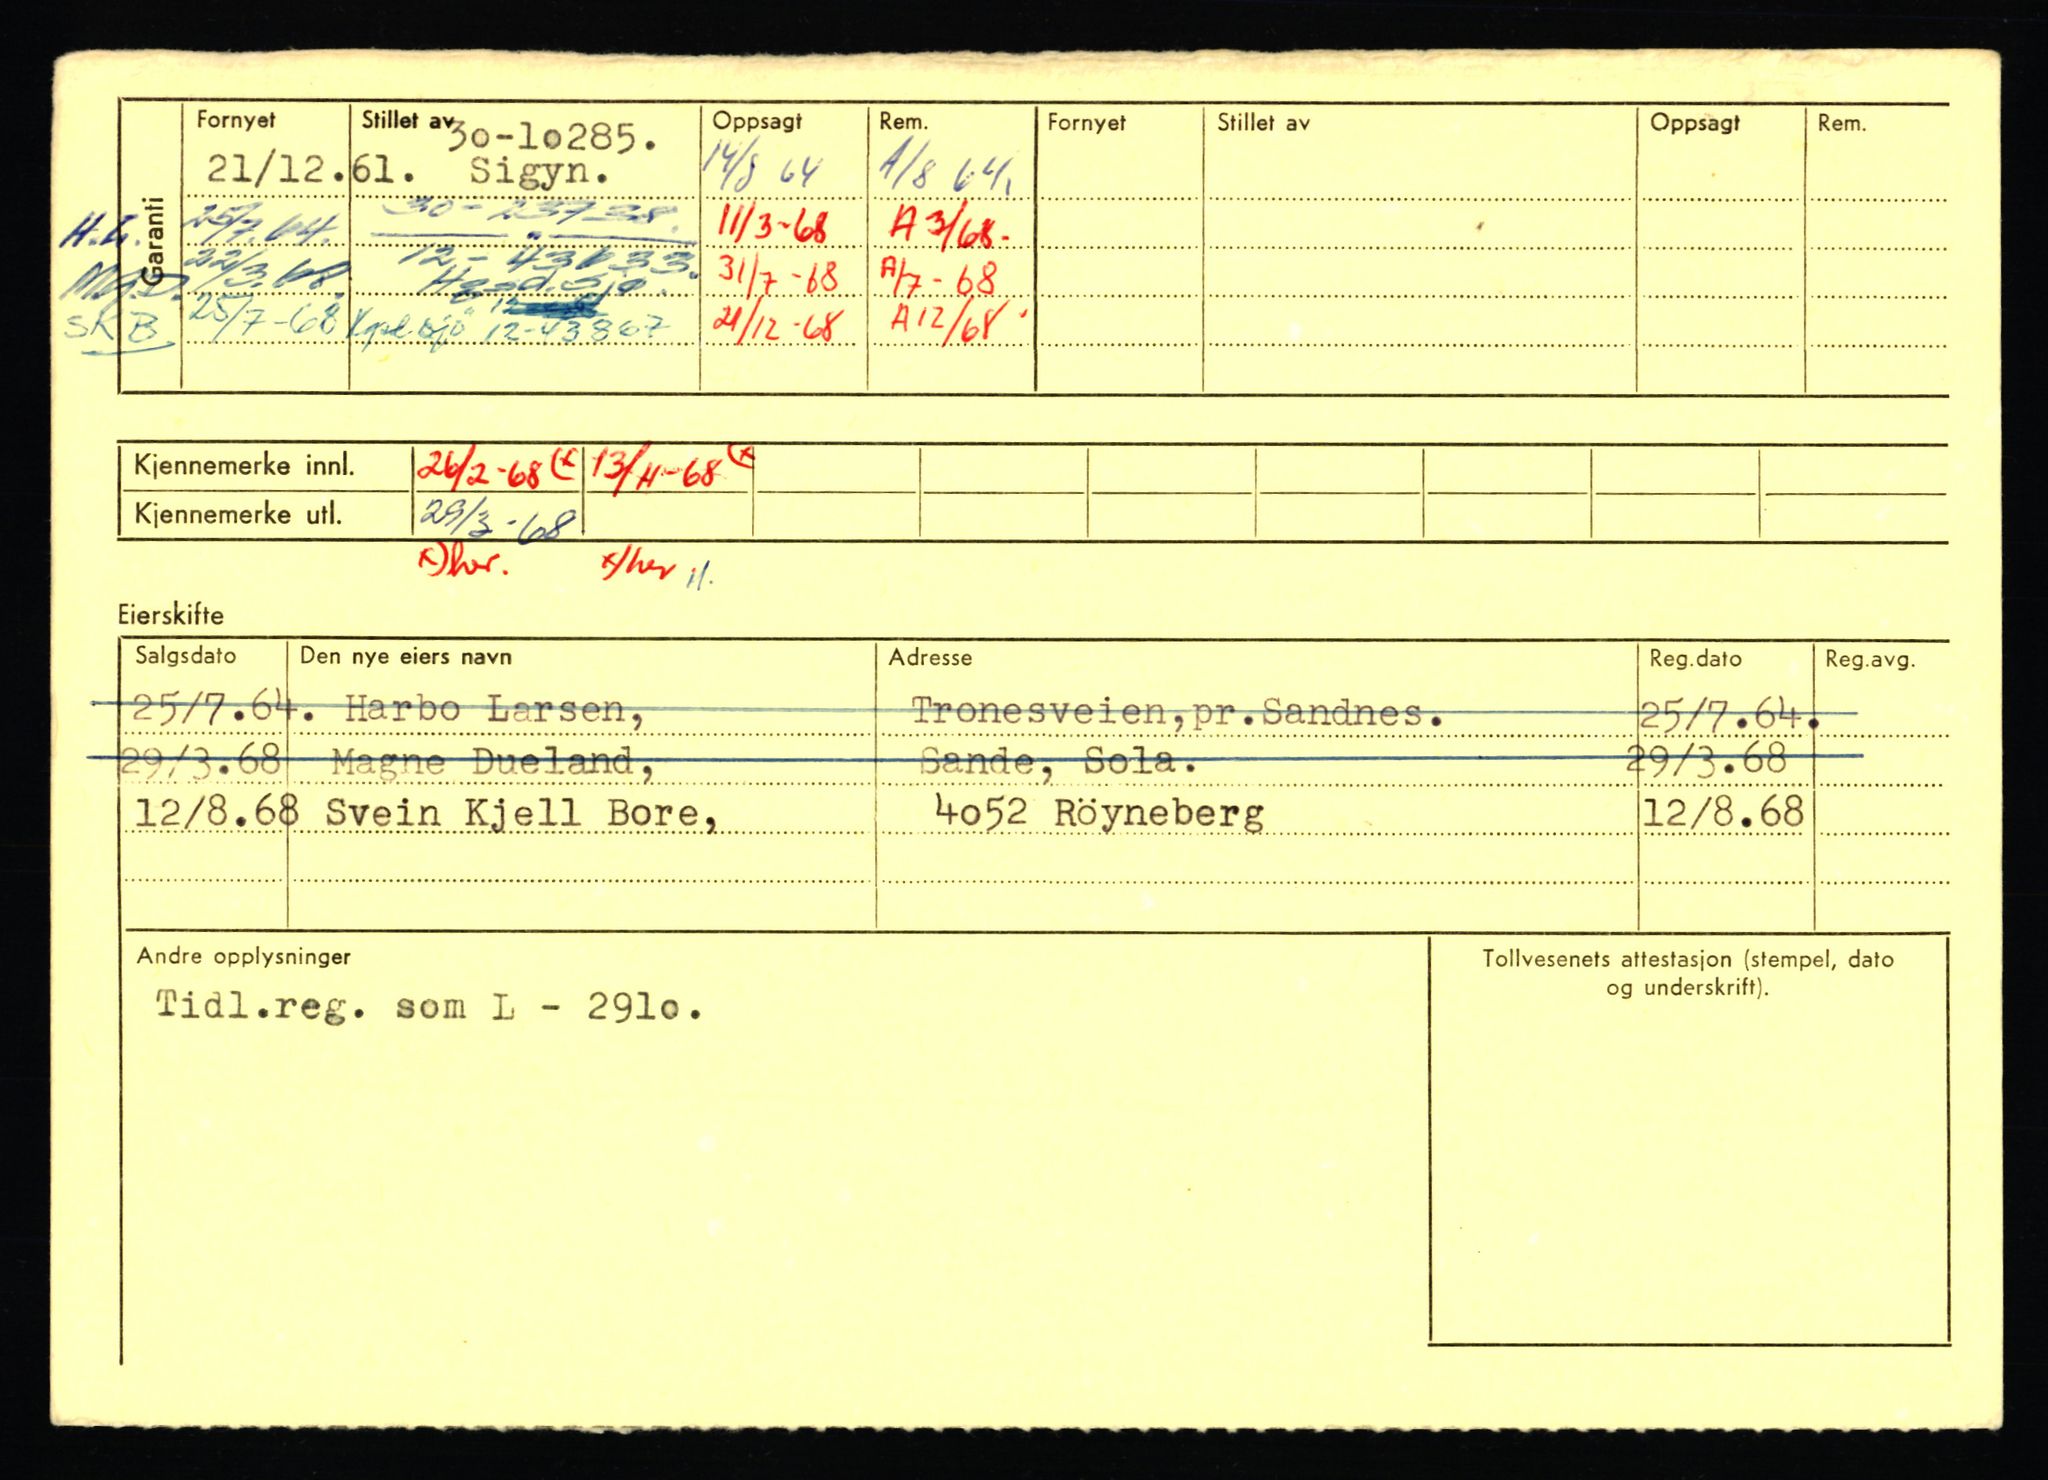 Garanti
Fornyet Stillet av Oppsagt Rem. Fornyet Stillet av Oppsagt Rem.
30-10285.
21/12.61. Sigyn. 14/8 64 A/8 64.
H.L. 25/7.64. 30-23738. 11/3-68 A 3/68.
22/3.68. 12-43633. 31/7-68 A/7-68
SKB 25/7-68 12-43867 21/12-68 A12/68
Kjennemerke innl. 26/2-68 (x 13/11-68 (x
Kjennemerke utl. 29/3-68
x) her. x) her
Eierskifte
Salgsdato Den nye eiers navn Adresse Reg.dato Reg.avg.
25/7.64. Harbo Larsen, Tronesveien,pr.Sandnes. 25/7.64.
29/3.68 Magne Dueland, Sande, Sola. 29/3.68
12/8.68 Svein Kjell Bore, 4o52 Röyneberg 12/8.68
Andre opplysninger Tollvesenets attestasjon (stempel, dato
og underskrift).
Tidl.reg. som L - 291o.